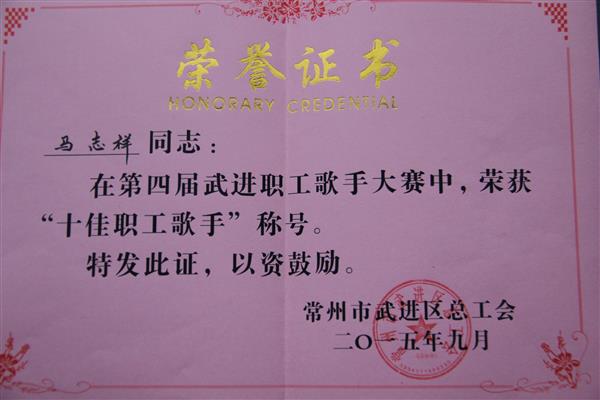 荣誉证书
HONORARY CREDENTIAL
马志祥同志：
在第四届武进职工歌手大赛中，荣获
“十佳职工歌手”称号。
特发此证，以资鼓励。
常州市武进区总工会
二〇一五年九月